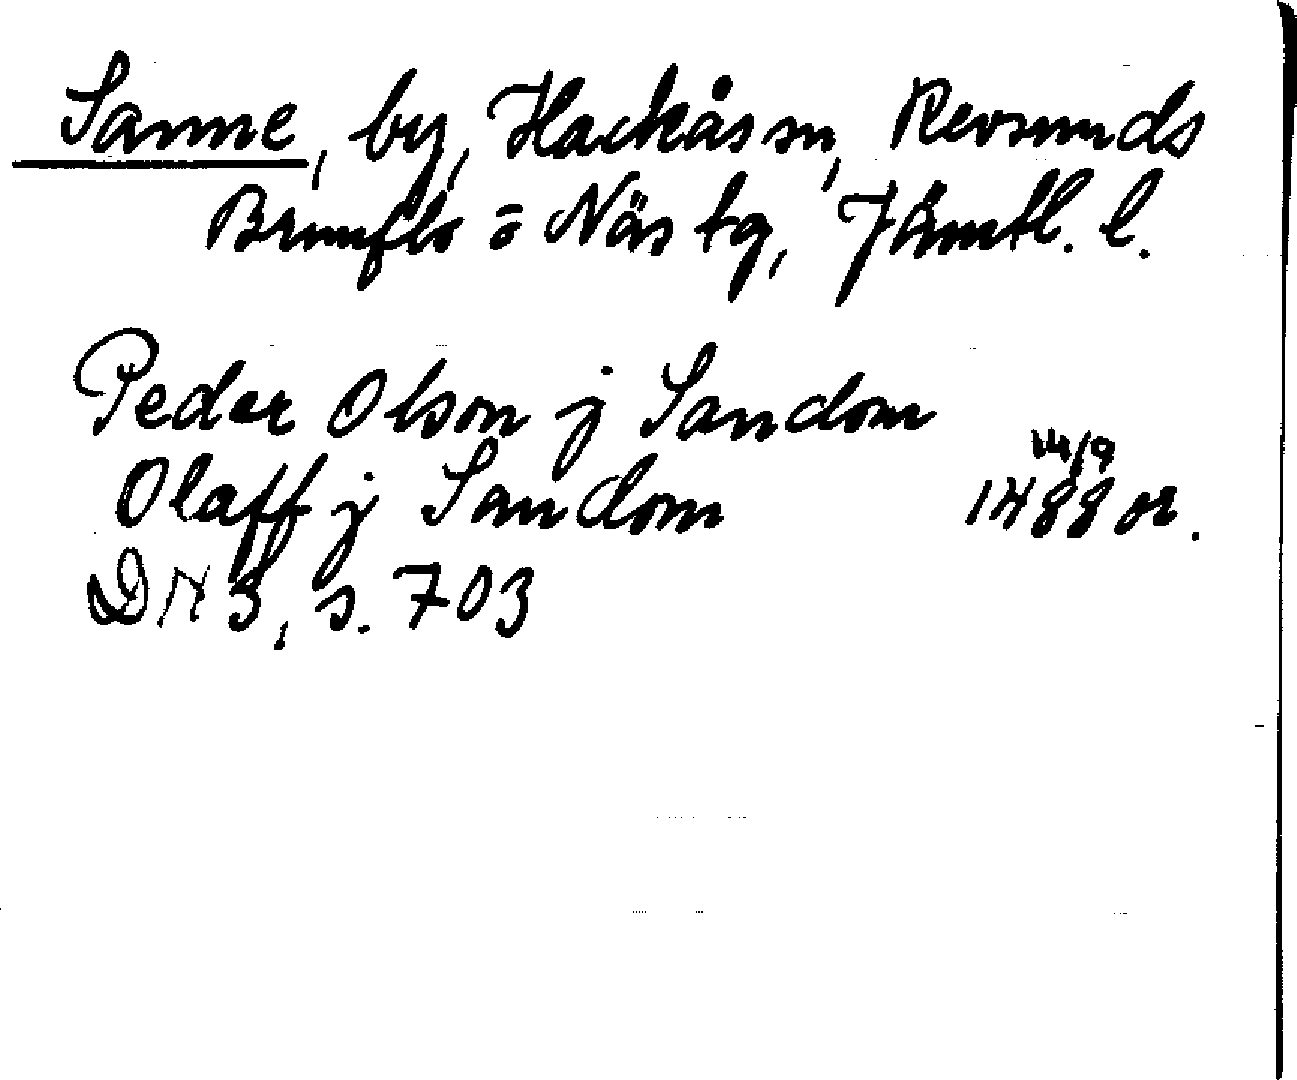 Sanne, by, Hackås sn, Revsunds
Brunflo o Näs tg, Jämtl. l.
Peder Olson j Sandom
Olaff j Sandom 14/9 1488 or.
DN 3, s. 703